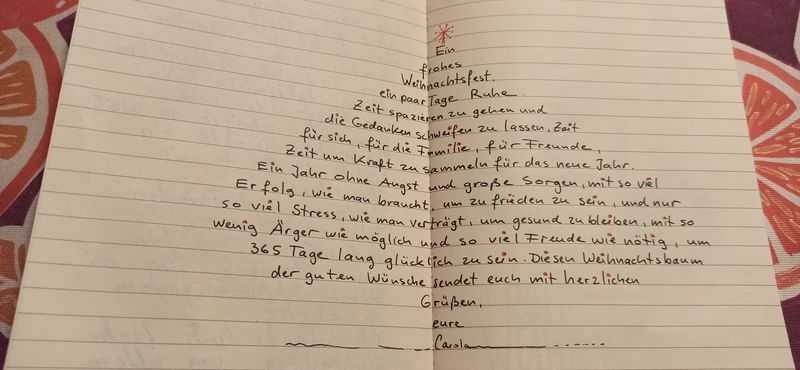 Ein
frohes
Weihnachtsfest,
ein paar Tage Ruhe.
Zeit spazieren zu gehen und
die Gedanken schweifen zu lassen, Zeit
für sich, für die Familie, für Freunde,
Zeit um Kraft zu sammeln für das neue Jahr.
Ein Jahr ohne Angst und große Sorgen, mit so viel
Erfolg, wie man braucht, um zu frieden zu sein, und nur
so viel Stress, wie man verträgt, um gesund zu bleiben, mit so
wenig Ärger wie möglich und so viel Freude wie nötig, um
365 Tage lang glücklich zu sein. Diesen Weihnachtsbaum
der guten Wünsche sendet euch mit herzlichen
Grüßen,
eure
Carola